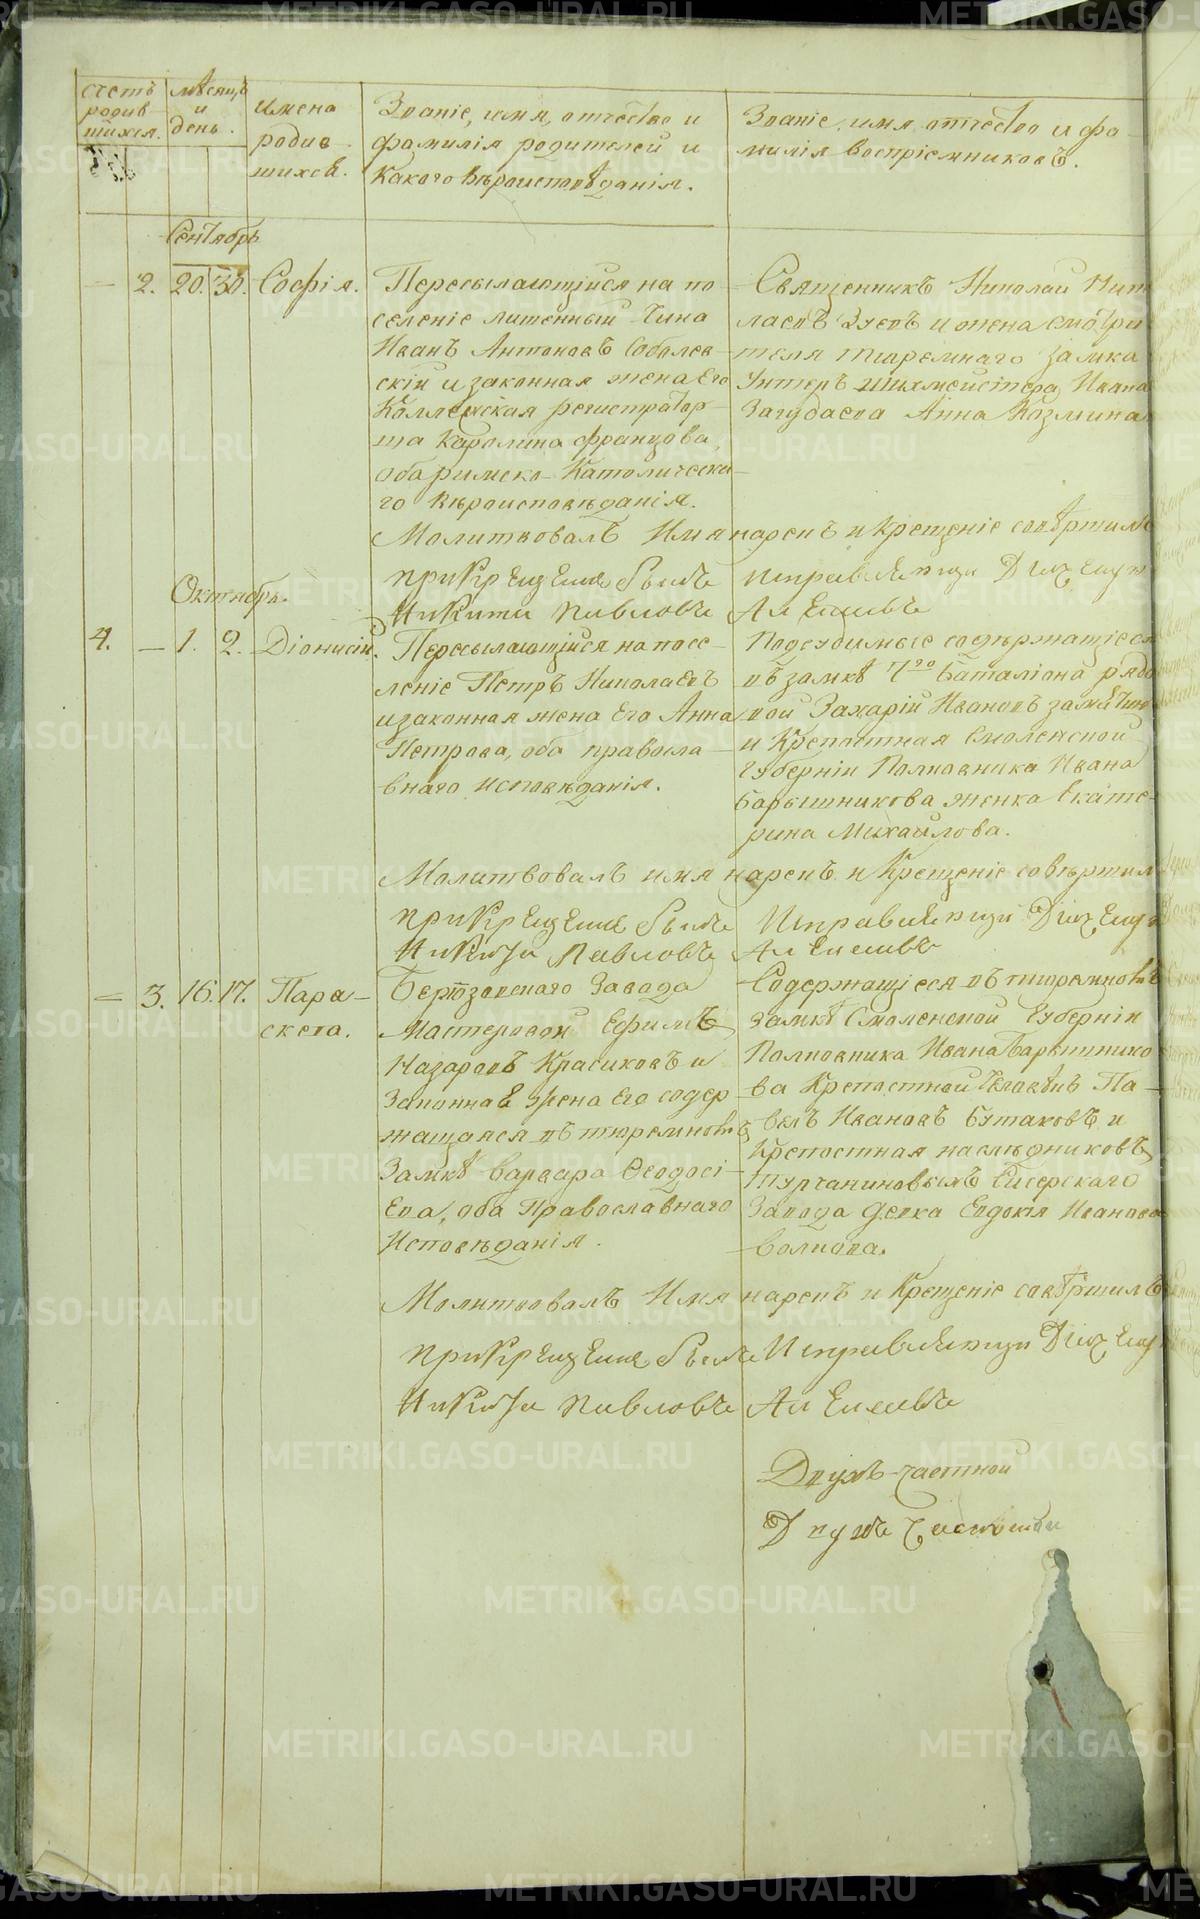 Счетъ родив-шихся.
мѣсяцъ и день.
имена родив-шихся.
Званіе, имя, отчество и
фамилія родителей и
какого вѣроисповѣданія.
Званіе, имя отчество и фа-
милія воспріемниковъ.
Сентябрь
— 2. 20. 30. Софія.
Пересылающійся на по
селеніе лишенный чина
Иванъ Антоновъ Соболев-
скій и законная жена его
Коллежская регистратор-
ша Каролина Францова,
оба римско-Католическа-
го вѣроисповѣданія.
Священникъ Николай
лаевъ Зуевъ и жена смотри
теля тюремнаго замка
Унтеръ шихмейстера Ивана
Загудаева Анна Козмина
Молитвовалъ Имя нарекъ и крещеніе совѣршилъ
при крещение былъ исправляющи
Никита Павловъ
Октябрь.
4. — 1. 2. Діонисій.
Пересылающійся на посе-
леніе Петръ Николаевъ
и законная жена его Анна
Петрова, оба правосла-
внаго исповѣданія.
Подсудимые содѣржащіеся
въ замкѣ 7го баталіона рядо
вой Захарій Ивановъ
и Крепостная Смоленской
Губерніи Полковника Ивана
Барышникова женка Екате-
рина Михайлова.
Молитвовалъ имя нарекъ и Крещеніе совѣршилъ
при крещение былъ Исправляющи
Никита Павловъ
= 3. 16. 17. Пара-
скева.
Берѣзовскаго Завода
Мастеровой Ефимъ
Назаровъ Красиковъ и
Законная Жена Его содер
жащаяся въ тюремномъ
Замкѣ Варвара Ѳеодосі-
Ева, оба Православнаго
Исповѣданія.
Содержащіеся въ тюремномъ
замкѣ Смоленской Губерніи
Полковника Ивана Барышнико
ва Крепостной Человѣкъ Па-
велъ Ивановъ Бутаковъ и
Крепостная наслѣдниковъ
Турчаниновыхъ Сысерскаго
Завода девка Евдокія Иванова
Волкова.
Молитвовалъ Имя нарекъ и Крещеніе совѣршилъ
при крещение былъ Исправляющи
Никита Павловъ
Двухъ-частной
METRIKI.GASO-URAL.RU